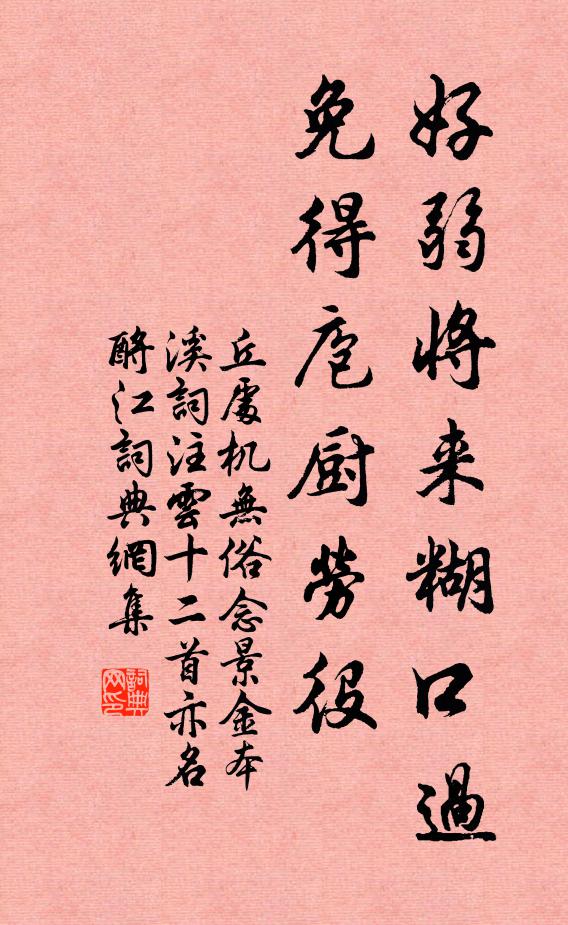 好弱將来糊口過
免得庖厨勞役
丘處机無俗念景金本
溪詞注雲十二首亦名
酹江詞典網集
詞典
网印